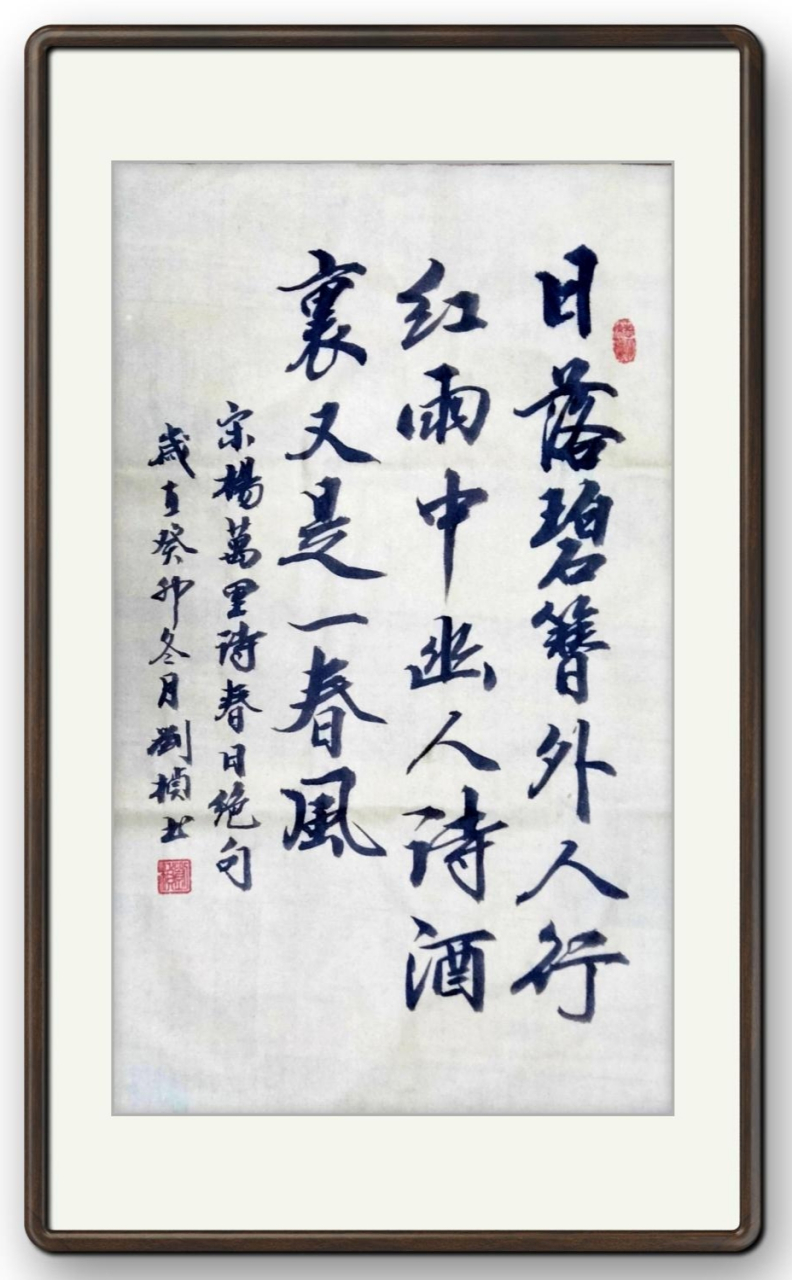 日落碧簪外人行
红雨中幽人诗酒
裏又是一春風
宋楊萬里诗春日绝句
歲在癸卯冬月劉楨书